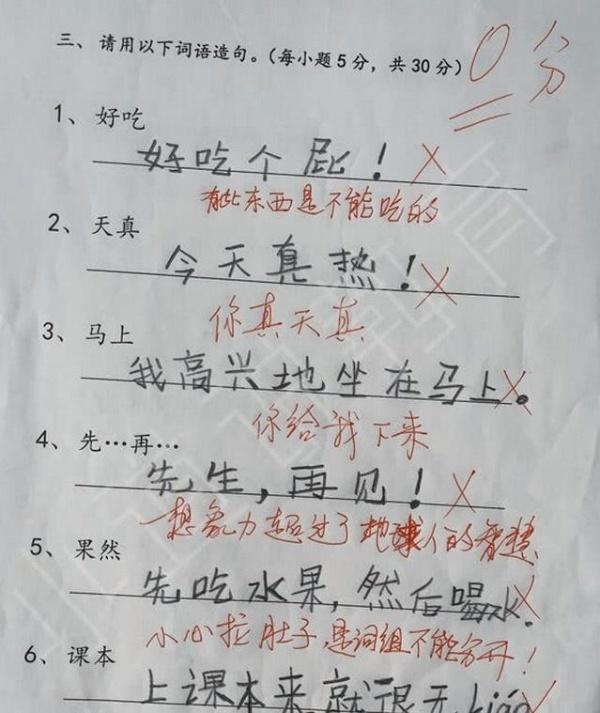 三、请用以下词语造句。（每小题5分，共30分）0分
1、好吃
好吃个屁！
有些东西是不能吃的
2、天真
今天真热！
你真天真
3、马上
我高兴地坐在马上。
你给我下来
4、先…再…
先生，再见！
想象力超过了地球人的智慧
5、果然
先吃水果，然后喝水.
小心拉肚子，是词组不能分开！
6、课本
上课本来就很无liáo